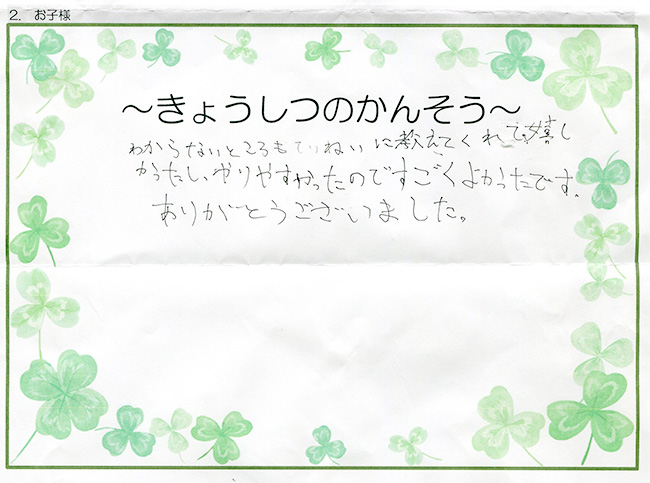 2. お子様
～きょうしつのかんそう～
わからないところもていねいに教えてくれて嬉し
かったし、やりやすかったのですごくよかったです。
ありがとうございました。